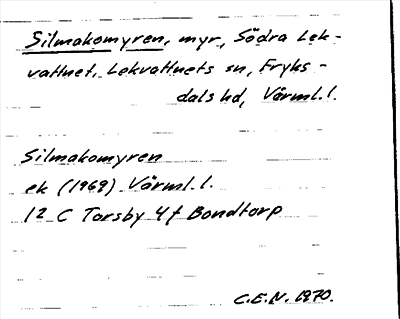 Silmakomyren, myr, Södra Lek-
vattnet, Lekvattnets sn, Fryks-
dals hd, Värml. l.
Silmakomyren
ek (1969) Värml. l.
12 C Torsby 4f Bondtorp
C.E.N. 1970.